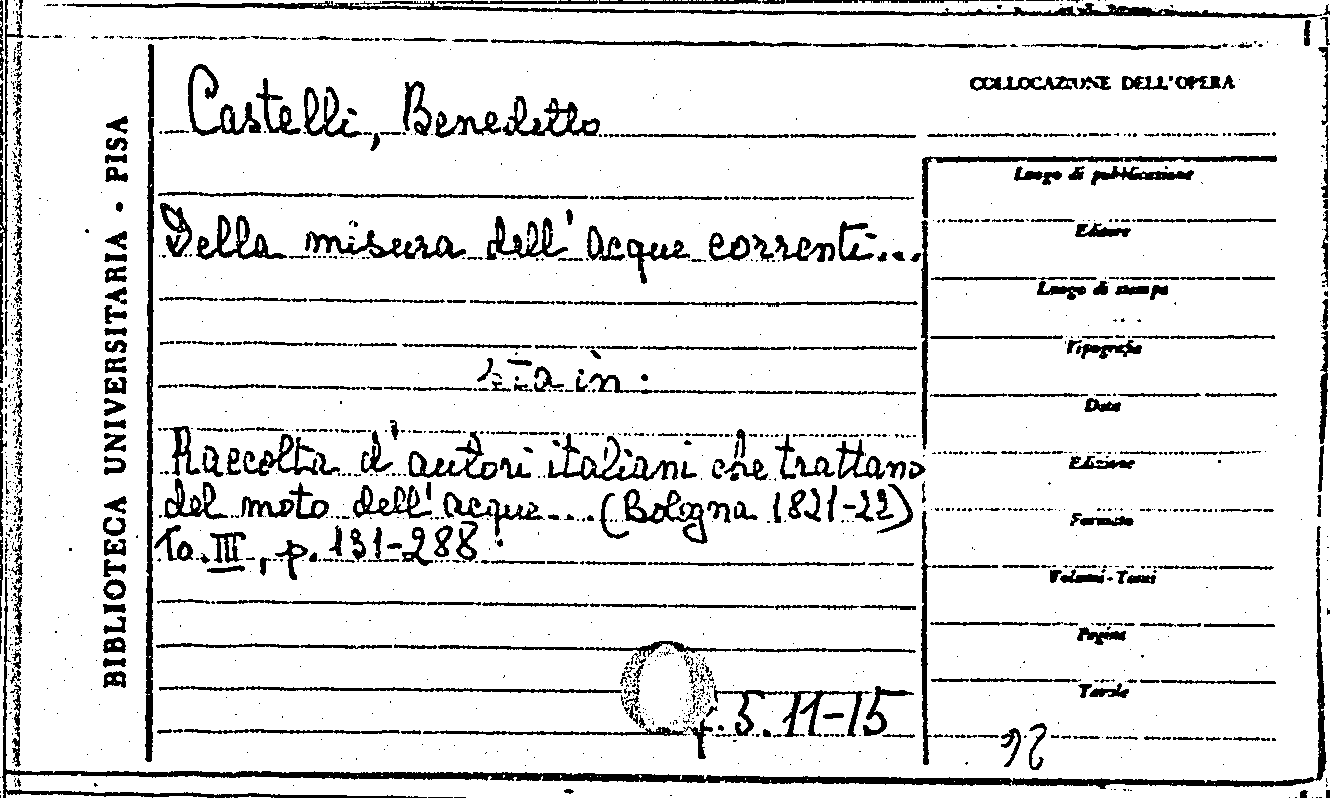 COLLOCAZIONE DELL'OPERA
Castelli, Benedetto
BIBLIOTECA UNIVERSITARIA - PISA
Della misura dell'acque correnti...
sta in:
Raccolta d'autori italiani che trattano
del moto dell'acque... (Bologna 1821-22)
To. III, p. 131-288.
.5.11-15
Luogo di pubblicazione
Editore
Luogo di stampa
Tipografia
Data
Edizione
Formato
Volumi - Tomi
Pagine
Tavole